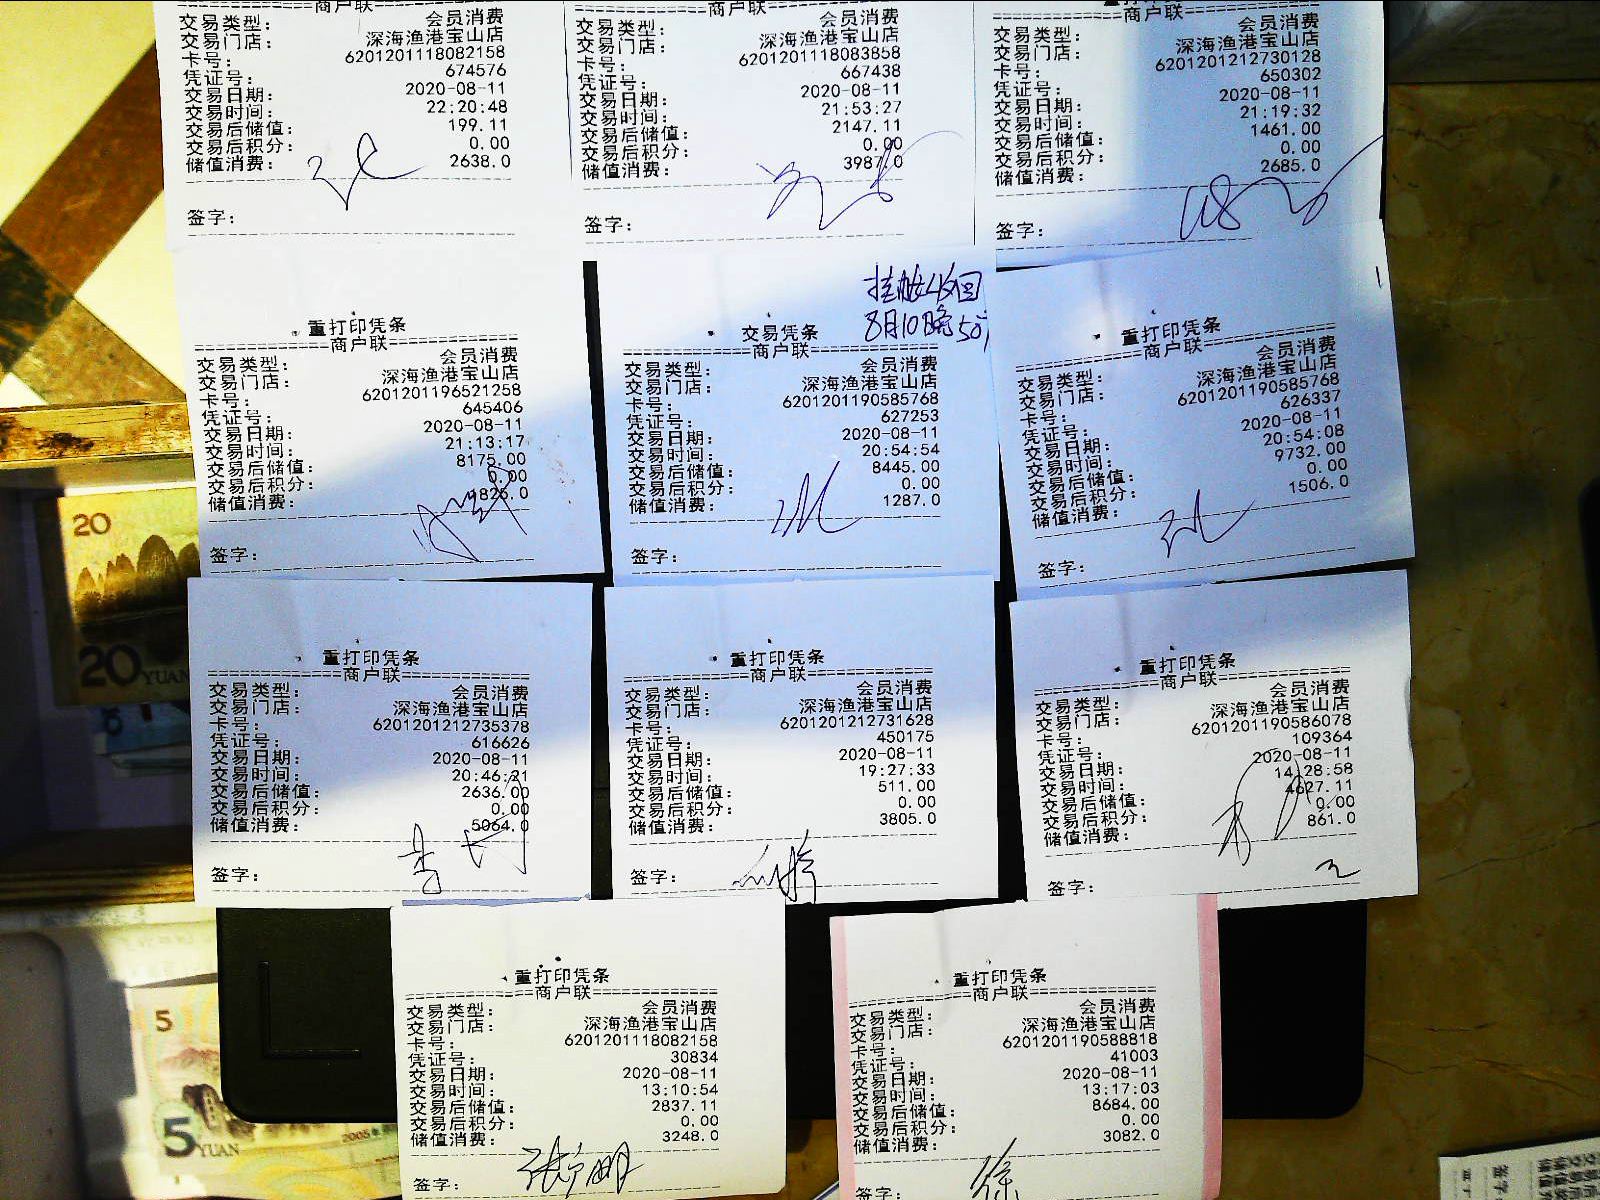 商户联
交易类型: 会员消费
交易门店: 深海渔港宝山店
卡号: 6201201118082158
凭证号: 674576
交易日期: 2020-08-11
交易时间: 22:20:48
交易后储值: 199.11
交易后积分: 0.00
储值消费: 2638.0
签字:
商户联
交易类型: 会员消费
交易门店: 深海渔港宝山店
卡号: 6201201118083858
凭证号: 667438
交易日期: 2020-08-11
交易时间: 21:53:27
交易后储值: 2147.11
交易后积分: 0.00
储值消费: 3987.0
签字:
商户联
交易类型: 会员消费
交易门店: 深海渔港宝山店
卡号: 6201201212730128
凭证号: 650302
交易日期: 2020-08-11
交易时间: 21:19:32
交易后储值: 1461.00
交易后积分: 0.00
储值消费: 2685.0
签字:
重打印凭条
商户联
交易类型: 会员消费
交易门店: 深海渔港宝山店
卡号: 6201201196521258
凭证号: 645406
交易日期: 2020-08-11
交易时间: 21:13:17
交易后储值: 8175.00
交易后积分: 0.00
储值消费: 1825.0
签字:
挂帐收回
8月10晚
交易凭条
商户联
交易类型: 会员消费
交易门店: 深海渔港宝山店
卡号: 6201201190585768
凭证号: 627253
交易日期: 2020-08-11
交易时间: 20:54:54
交易后储值: 8445.00
交易后积分: 0.00
储值消费: 1287.0
签字:
重打印凭条
商户联
交易类型: 会员消费
交易门店: 深海渔港宝山店
卡号: 6201201190585768
凭证号: 626337
交易日期: 2020-08-11
交易时间: 20:54:08
交易后储值: 9732.00
交易后积分: 0.00
储值消费: 1506.0
签字:
重打印凭条
商户联
交易类型: 会员消费
交易门店: 深海渔港宝山店
卡号: 6201201212735378
凭证号: 616626
交易日期: 2020-08-11
交易时间: 20:46:21
交易后储值: 2636.00
交易后积分: 0.00
储值消费: 5064.0
签字:
重打印凭条
商户联
交易类型: 会员消费
交易门店: 深海渔港宝山店
卡号: 6201201212731628
凭证号: 450175
交易日期: 2020-08-11
交易时间: 19:27:33
交易后储值: 511.00
交易后积分: 0.00
储值消费: 3805.0
签字:
重打印凭条
商户联
交易类型: 会员消费
交易门店: 深海渔港宝山店
卡号: 6201201190586078
凭证号: 109364
交易日期: 2020-08-11
交易时间: 14:28:58
交易后储值: 4627.11
交易后积分: 0.00
储值消费: 861.0
签字:
重打印凭条
商户联
交易类型: 会员消费
交易门店: 深海渔港宝山店
卡号: 6201201118082158
凭证号: 30834
交易日期: 2020-08-11
交易时间: 13:10:54
交易后储值: 2837.11
交易后积分: 0.00
储值消费: 3248.0
签字:
重打印凭条
商户联
交易类型: 会员消费
交易门店: 深海渔港宝山店
卡号: 6201201190588818
凭证号: 41003
交易日期: 2020-08-11
交易时间: 13:17:03
交易后储值: 8684.00
交易后积分: 0.00
储值消费: 3082.0
签字: 徐
20
20 YUAN
5
5 YUAN
2005